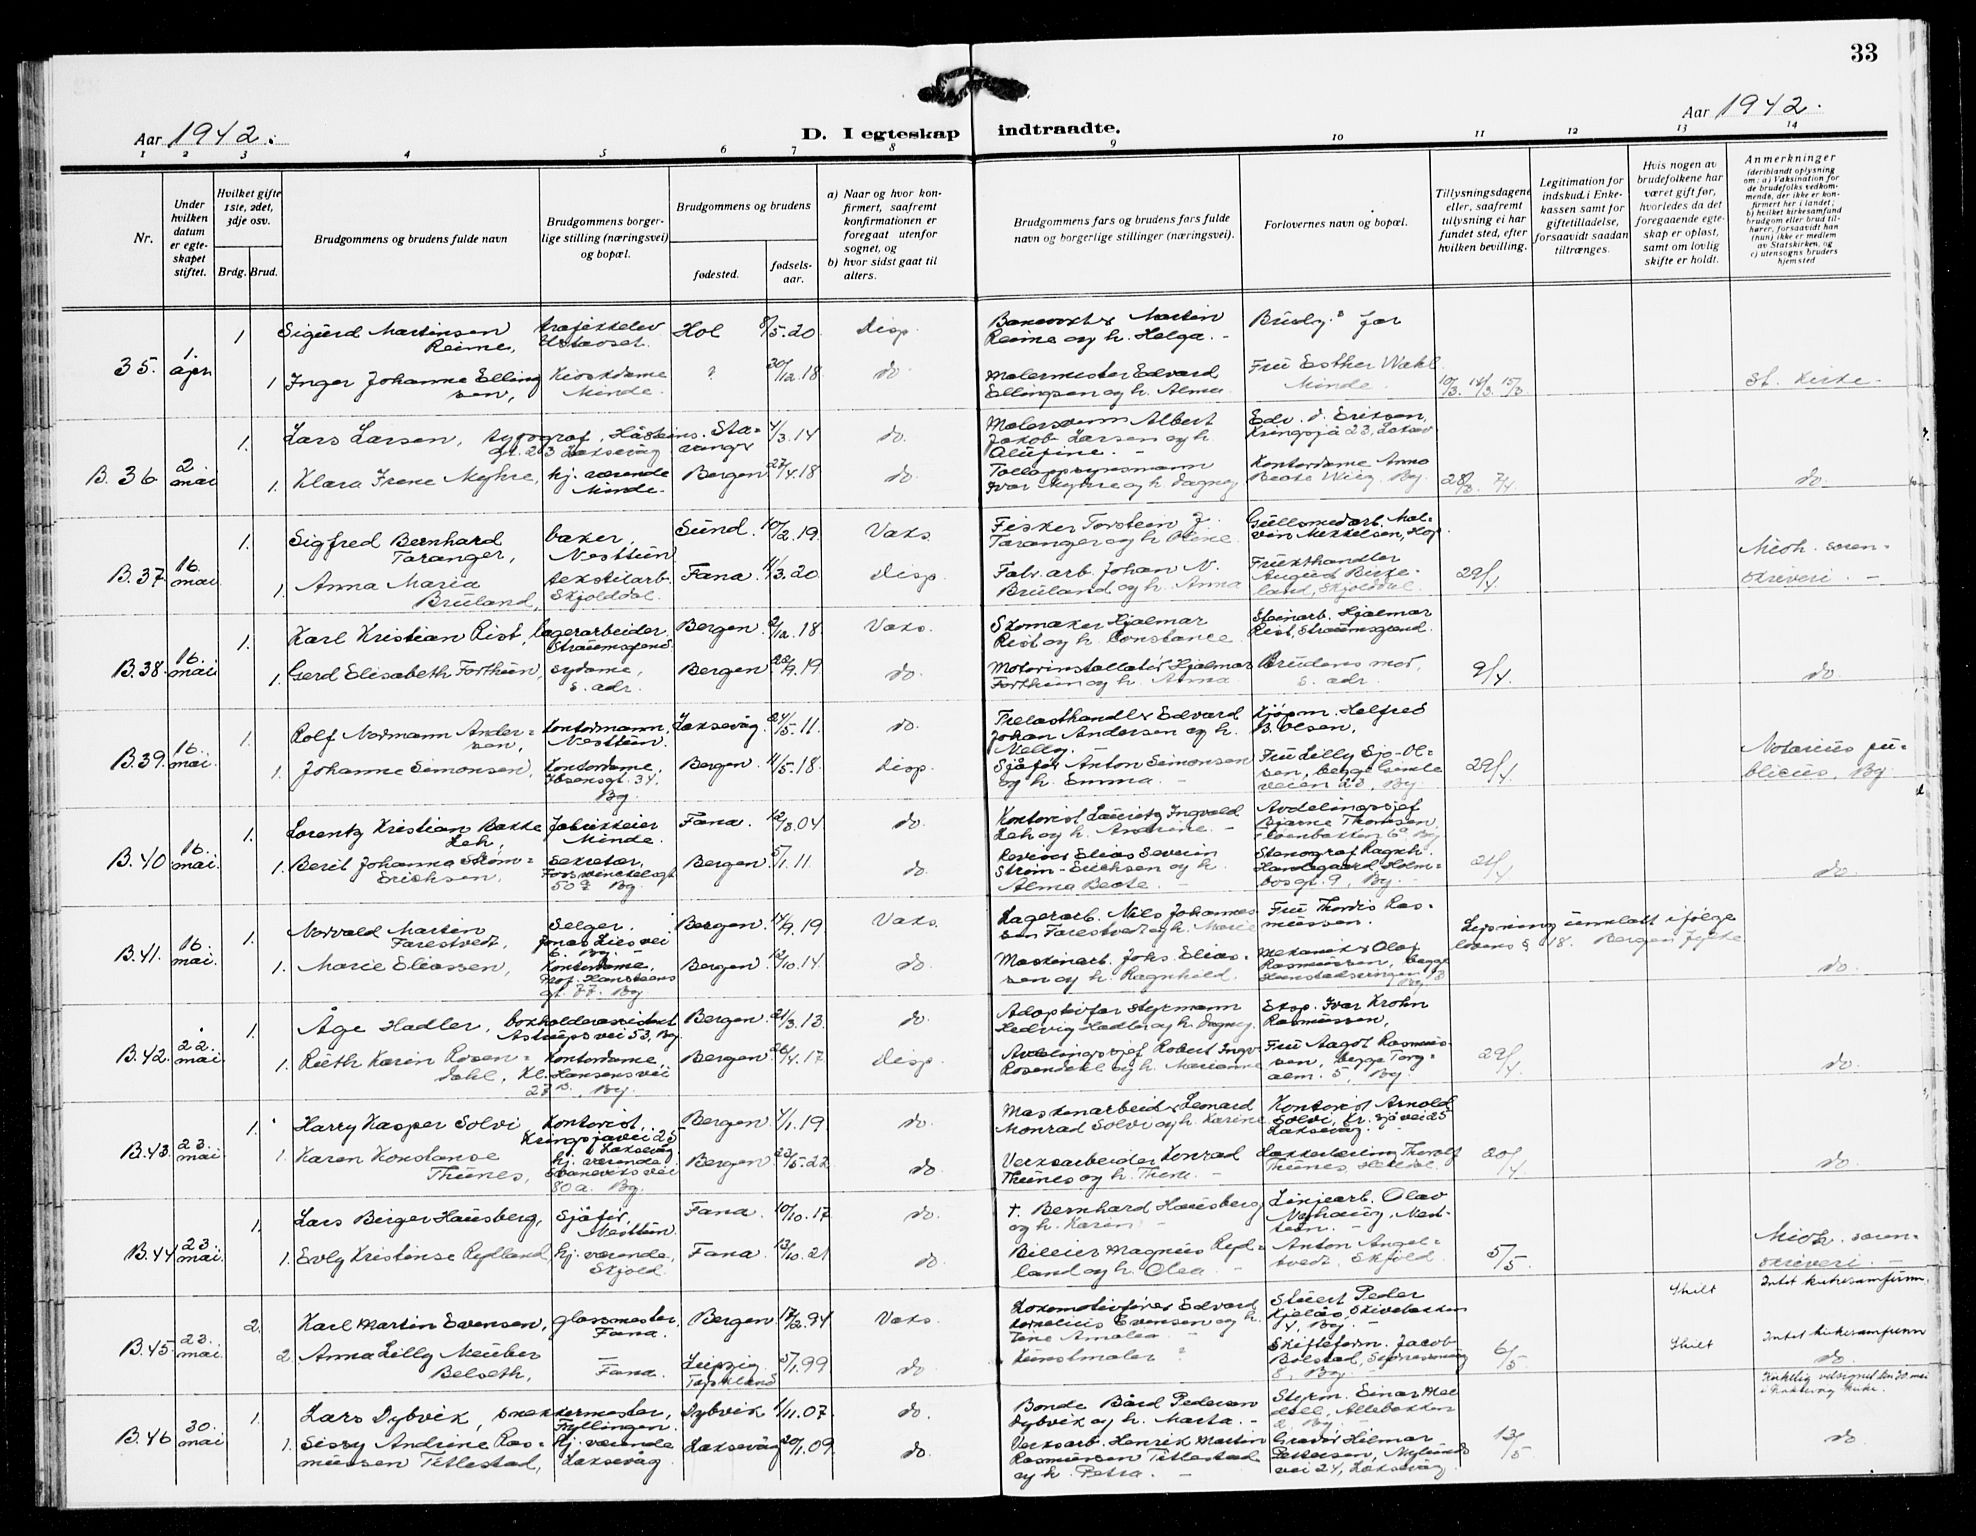 33
Aar 1942.
D. I egteskap indtraadte.
Aar 1942.
1 2 3 4 5 6 7 8 9 10 11 12 13 14
Nr.
Under hvilken datum er egteskapet stiftet.
Hvilket gifte 1ste, 2det, 3dje osv.
Brdg. Brud.
Brudgommens og brudens fulde navn
Brudgommens borgerlige stilling (næringsvei) og bopæl.
Brudgommens og brudens
fødested.
fødselsaar.
a) Naar og hvor konfirmert, saafremt konfirmationen er foregaat utenfor sognet, og
b) hvor sidst gaat til alters.
Brudgommens fars og brudens fars fulde navn og borgerlige stillinger (næringsvei).
Forlovernes navn og bopæl.
Tillysningsdagene eller, saafremt tillysning ei har fundet sted, efter hvilken bevilling.
Legitimation for indskud i Enkekassen samt for giftetilladelse, forsaavidt saadan tiltrænges.
Hvis nogen av brudefolkene har været gift før, hvorledes da det foregaaende egteskap er opløst, samt om lovlig skifte er holdt.
Anmerkninger
(deriblandt oplysning om: a) Vaksination for de brudefolks vedkommende, der ikke er konfirmert her i landet;
b) hvilket kirkesamfund brudgom eller brud tilhører, forsaavidt han (hun) ikke er medlem av Statskirken, og
c) utensogns bruders hjemsted
35. 1. apri
1 Sigurd Martinsen Reime, trafikkelev Ustaoset. Hol 8/5.20 Disp.
Banevokter Martin Reime og h. Helga. -
1 Inger Johanne Ellingsen, Kioskdame Minde. ? 30/12.18 do.
Malermester Edvard Ellingsen og h. Alma. Fru Esther Wahl Minde. 15/3
B.36 2 mai
1. Lars Larsen, typograf, gt. 23 Laksevåg Stavanger 4/3.14 do.
Malersvenn Albert Jakob Larsen og h. Olufine. - Edv. J. Eriksen, Kringsjå 23, Laksev
1. Klara Irene Myhre, hj. værende Minde. Bergen 27/4.18 do.
Tolloppsynsmann Ivar Myhre og h. Dagny Kontordame Anna Beate Wiig. By. do.
B.37 16. mai
1. Sigfred Bernhard Taranger, baker, Nesttun Sund. 10/2.19. Vaks.
Fisker Torstein J. Taranger og h. Oline. Gullsmedarb. Malvin Mikkelsen, Hop
1. Anna Maria Bruland, tekstilarb. Skjolddal. Fana 11/3.20 Disp.
Fabr. arb. Johan N. Bruland og h. Anna Frukthandler August Birkeland, Skjolddal. 29/4 Midh. sorenskriveri. -
B.38 16. mai
1. Karl Kristian Rist, lagerarbeider Straumsgrend. Bergen. 2/12.18. Vaks.
Skomaker Hjalmar Rist og h. Constance Steinarb. Hjalmar Rist, Straumsgrend.
1. Gerd Elisabeth Forthun, sydame, s. adr. Bergen 28/9.19 do.
Motorinstallatør Hjalmar Forthun og h. Anna Brudens mor, s. adr. 9/4 do.
B.39. 16. mai
1. Rolf Normann Andersen, kontormann, Nesttun. Laksevåg. 24/5.11 do.
Trelasthandler Edvard Johan Andersen og h. Nelly. Kjøpm. Halfred B. Olsen,
1. Johanne Simonsen, kontordame, Ibsensgt. 34, By. Bergen. 11/5.18. Disp.
Sjåfør Anton Simonsen og h. Emma. - 29/4 Notarius publicus, By
B.40 16. mai
1. Lorentz Kristian Bakke Leh, fabrikkeier Minde. Fana. 12/8.04 do.
Kontorist Lauritz Ingvald Leh og h. Andrine. - Avdelingssjef Bjarne Thomsen,
1. Berit Johanna Strøm-Erichsen, sekretær, 50a By. Bergen 5/1.11. do.
Revisor Elias Severin Strøm-Erichsen og h. Alma Beate. - Stenograf Ragnh. 9, By. 21/4 do.
B.41. 16. mai.
1. Norvald Martin Farestvedt, Selger. Jonas Lies vei 6. By. Bergen. 14/9.19 Vaks.
Lagerarb. Nils Johannessen Farestvedt og h. Marie Fru Thordis Rasmussen. Lysning unnlatt ifølge lovens § 18. Bergen
1. Marie Eliassen, Kontordame, Prof. Hansteens gt. 77. By Bergen. 12/10.14 do.
Maskinarb. Johs. Eliassen og h. Ragnhild. Mekaniker Olaf Rasmussen, begge do.
B.42. 22. mai
1. Åge Hadler, bokholderassistent Astrupsvei 53, By. Bergen 21/3.13. do.
Adoptivfar styrmann Hedvig Hadler og h. Dagny. Eksp. Ivar Krohn Rasmussen,
1. Ruth Karin Rosendahl, Kontordame, Kl. Hansensvei 27B., By. Bergen 26/4.17 Disp.
Avdelingssjef Robert Ingv. Rosendahl og h. Marianne Fru Aagot Rasmussen, begge Torgalm. 5, By. 29/4 do.
B.43. 23. mai
1. Harry Kasper Solvi Kontorist, Kringsjavei 25 Laksevåg Bergen. 4/1.19. do.
Maskinarbeider Leonard Monrad Solvi og h. Karine Kontorist Arnold Solvi, Kr. sjåvei 25 Laksevåg.
1. Karen Konstanse Thunes, hj. værende Svaneviksvei 80a. By. Bergen. 22/5.22 do.
Verksarbeider Konrad Thunes og h. Thera. Thorolf Thunes, 20/4 do.
B.44 23. mai
1. Lars Birger Hausberg, sjåfør, Nesttun. Fana. 10/10.17 do.
+. Bernhard Hausberg og h. Karen - Linjearb. Olav Nyhaug, Nesttun. -
1. Evly Kristense Rydland, hj. værende, Skjold. Fana. 13/10.21 do
Bileier Magnus Rydland og h. Olea. - Anton Angeltvedt, Skjold. 5/5 Midh. sorenskriveri. -
B.45. 23. mai
2. Karl Martin Evensen, glassmester, Fana. Bergen 17/2.94 Vaks.
Lokomotivfører Edvard Kornelius Evensen og h. Tine Amalea. - Stuert Peder 4, By. - Skilt Intet kirkesamfunn.
2. Anna Lilly Meuber Belseth, — Fana. Leipzig Tyskland 5/1.99 do.
Kunstmaler ? Skifteform. Jacob Bolstad, 8, By. 6/5 Skilt Intet kirkesamfunn do.
B.46 30. mai
1. Lars Dybvik, snekkermester, Fyllingen. Dybvik 1/11.07. do.
Bonde Bård Pedersen Dybvik og h. Marta. - Styrm. Einar 2 By. - Kirkelig velsignet den 30. mai i Laksevåg kirke.
1. Sissy Andrine Rasmussen Titlestad, hj. værende Laksevåg. Laksevåg 20/1.09. do.
Verksarb. Henrik Martin Rasmussen Titlestad og h. Petra. - Gravør Hilmar Pettersen, Nylundsvei 24, Laksevåg. 13/5 do.